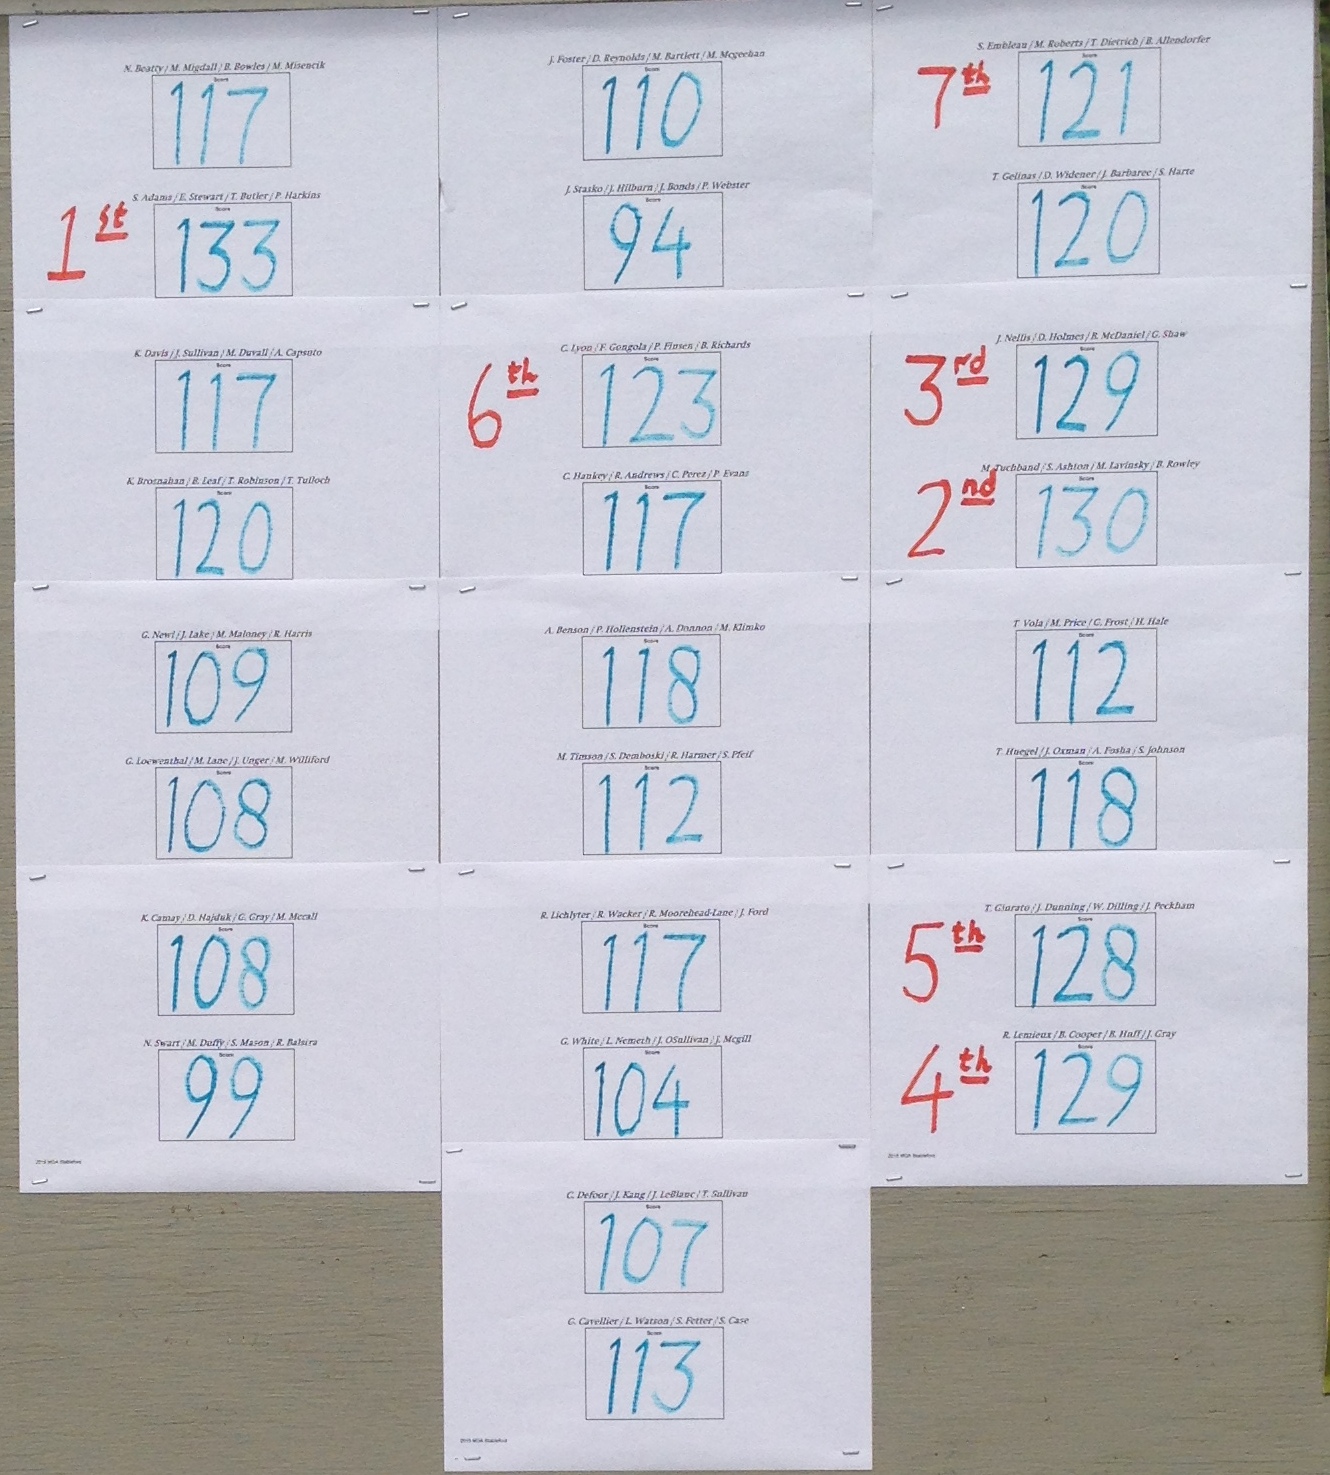 N. Beatty / M. Migdall / B. Bowles / M. Misencik
Score
117
S. Adams / E. Stewart / T. Butler / P. Harkins
Score
1st
133
K. Davis / J. Sullivan / M. Duvall / A. Capsuto
Score
117
K. Brosnahan / B. Leaf / T. Robinson / T. Tulloch
Score
120
G. Newl / J. Lake / M. Maloney / R. Harris
Score
109
G. Loewenthal / M. Lane / J. Unger / M. Williford
Score
108
K. Camay / D. Hajduk / G. Gray / M. Mccall
Score
108
N. Swart / M. Duffy / S. Mason / R. Balsira
Score
99
J. Foster / D. Reynolds / M. Bartlett / M. Mcgeehan
Score
110
J. Stasko / J. Hilburn / J. Bonds / P. Webster
Score
94
C. Lyon / F. Gongola / P. Finsen / B. Richards
Score
6th
123
C. Hankey / R. Andrews / C. Perez / P. Evans
117
A. Benson / P. Hollenstein / A. Donnon / M. Klimko
Score
118
M. Timson / S. Demboski / R. Harmer / S. Pfeif
Score
112
R. Lichlyter / R. Wacker / R. Moorehead-Lane / J. Ford
Score
117
G. White / L. Nemeth / J. OSullivan / J. Mcgill
Score
104
C. Defoor / J. Kang / J. LeBlanc / T. Sullivan
Score
107
G. Cavellier / L. Watson / S. Fetter / S. Case
Score
113
S. Embleau / M. Roberts / T. Dietrich / B. Allendorfer
Score
7th
121
T. Gelinas / D. Widener / J. Barbaree / S. Harte
Score
120
J. Nellis / D. Holmes / B. McDaniel / G. Shaw
Score
3rd
129
M. Tuchband / S. Ashton / M. Lavinsky / B. Rowley
Score
2nd
130
T. Vola / M. Price / G. Frost / H. Hale
Score
112
T. Huegel / J. Oxman / A. Fosha / S. Johnson
Score
118
T. Giurato / J. Dunning / W. Dilling / J. Peckham
Score
5th
128
R. Lemieux / B. Cooper / B. Huff / J. Gray
Score
4th
129